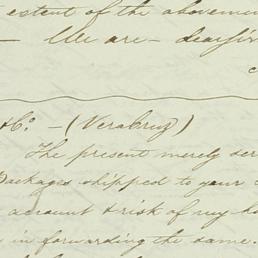 extent of the abovemen
— We are — dear Sir
& Co. — (Verabruz)
The present merely ser
Packages shipped to your
account & risk of my
in forwarding the same.